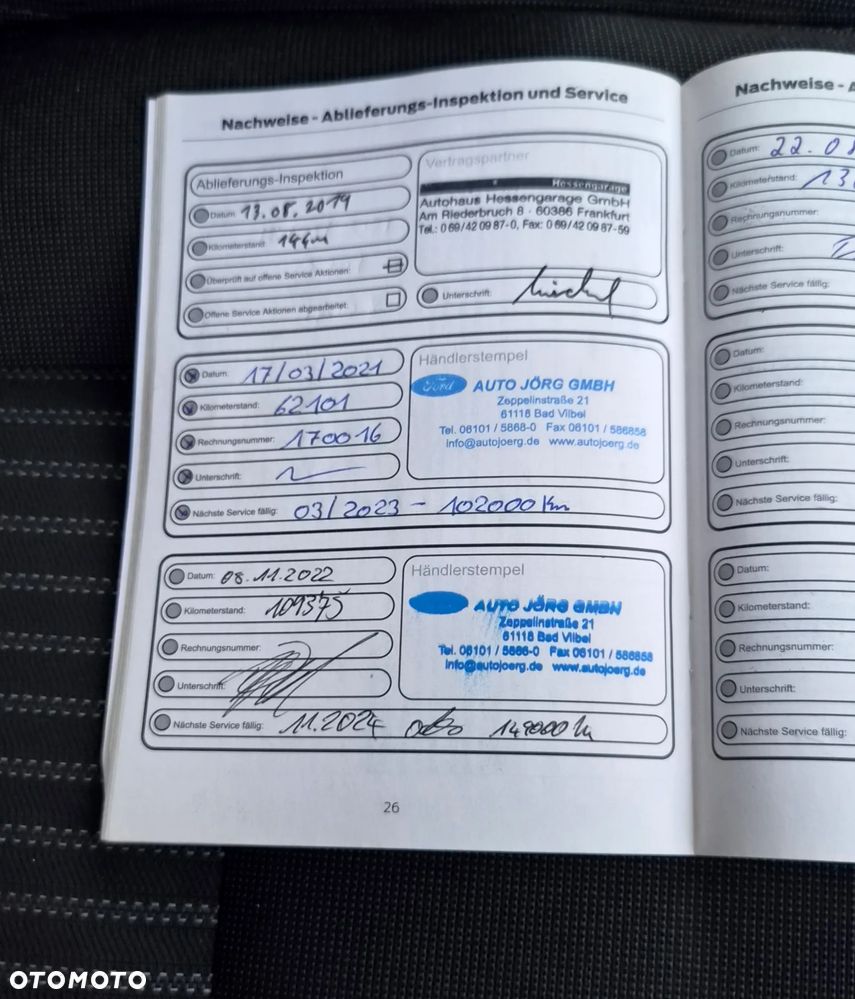 Nachweise - Ablieferungs-Inspektion und Service
Ablieferungs-Inspektion
Datum: 13.08.2019
Kilometerstand: 14 km
Überprüft auf offene Service Aktionen:
Offene Service Aktionen abgearbeitet:
Vertragspartner
Hessengarage
Autohaus Hessengarage GmbH
Am Riederbruch 8 · 60386 Frankfurt
Tel.: 0 69/42 09 87-0, Fax: 0 69/42 09 87-59
Unterschrift:
Datum: 17/03/2021
Kilometerstand: 62101
Rechnungsnummer: 170016
Unterschrift:
Nächste Service fällig: 03/2023 - 102000 Km
Händlerstempel
Ford AUTO JÖRG GMBH
Zeppelinstraße 21
61118 Bad Vilbel
Tel. 06101 / 5868-0 Fax 06101 / 586858
info@autojoerg.de www.autojoerg.de
Datum: 08.11.2022
Kilometerstand: 109375
Rechnungsnummer:
Unterschrift:
Nächste Service fällig: 11.2024
Händlerstempel
AUTO JÖRG GMBH
Zeppelinstraße 21
61118 Bad Vilbel
Tel. 06101 / 5868-0 Fax 06101 / 586858
info@autojoerg.de www.autojoerg.de
26
Nachweise -
Datum: 22.
Kilometerstand:
Rechnungsnummer:
Unterschrift:
Nächste Service fällig:
Datum:
Kilometerstand:
Rechnungsnummer:
Unterschrift:
Nächste Service fällig:
Datum:
Kilometerstand:
Rechnungsnummer:
Unterschrift:
Nächste Service fällig:
OTOMOTO